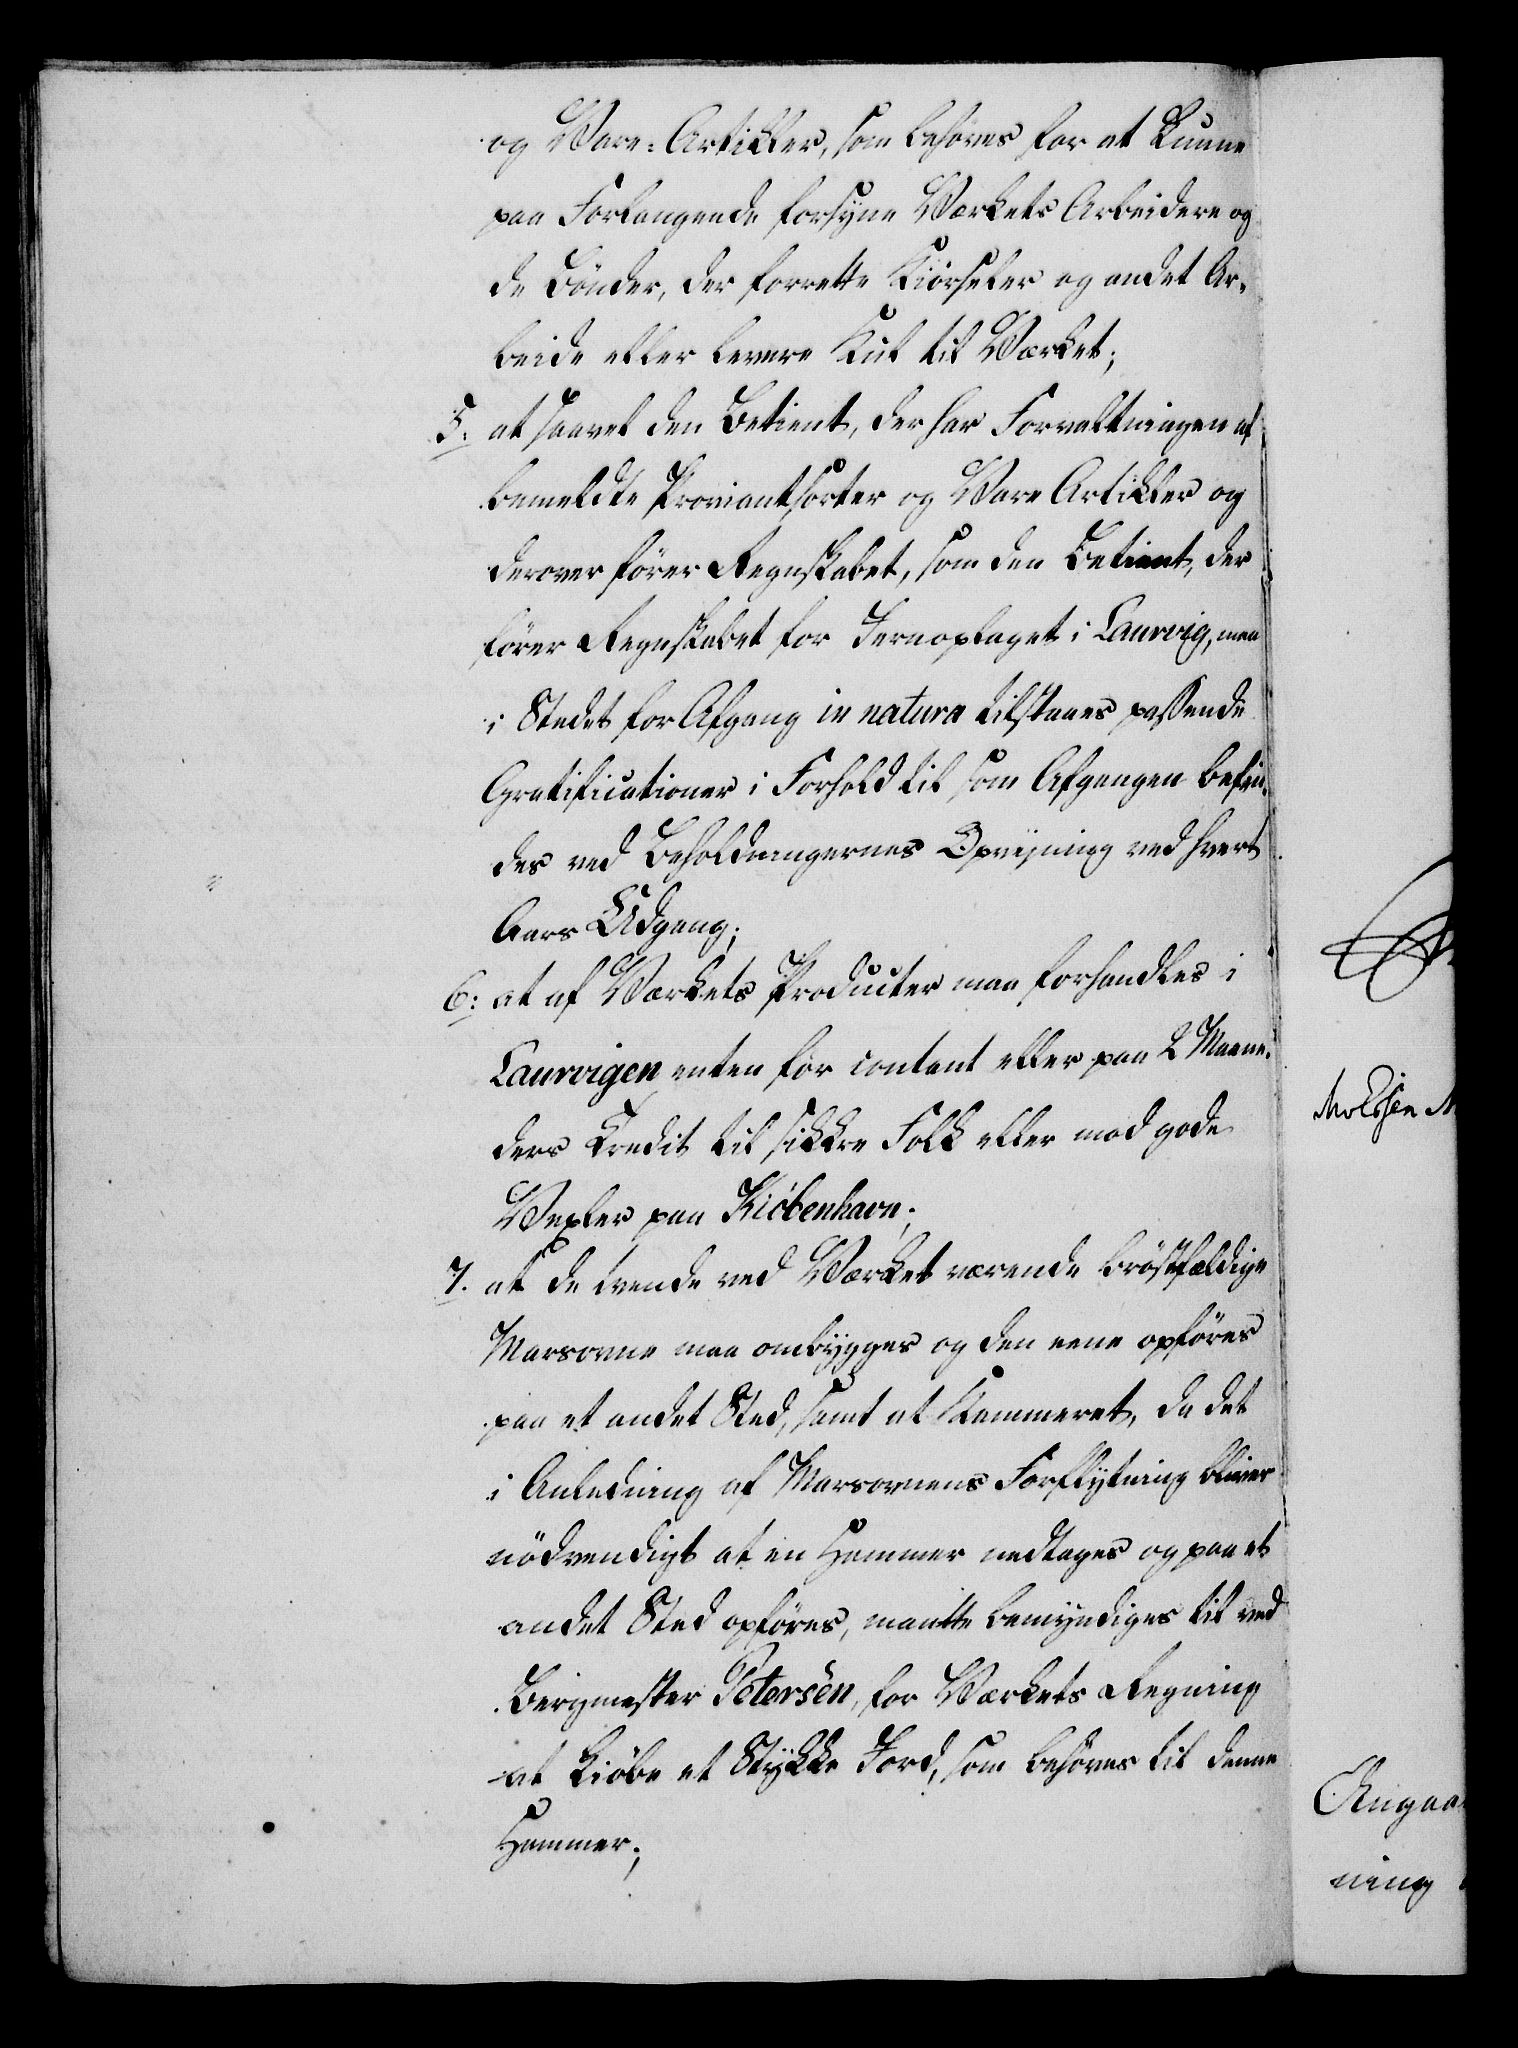 og Vare-Artikler, som behöves for at kunne
paa Forlangende forsyne Værkets Arbeidere og
de Bönder, der forrette Kiörseler og andet Ar-
beide eller levere Kul til Værket;
5. at saavel den Betient, der har Forvaltningen af
bemeldte Proviantsorter og Vare Artikler og
derover förer Regnskabet, som den Betient, der
förer Regnskabet for Jernoplaget i Laurvig, maa
i Stedet for Afgang in natura tilstaaes passende
Gratificationer i Forhold til som Afgangen befin-
des ved Beholdningernes Opvejning ved hvert
Aars Udgang;
6: at af Værkets Producter maa forhandles i
Laurvigen enten for contant eller paa 2 Maane-
ders Credit til sikkre Folk eller mod gode
Vexler paa Kiöbenhavn;
7. at de tvende ved Værket værende bröstfældige
Marsovne maa ombygges og den eene opföres
paa et andet Sted, samt at Kammeret, da det
i Anledning af Marsovnens Forflytning bliver
nödvendigt at en Hammer nedtages og paa et
andet Sted opföres, maatte bemyndiges til ved
Bergmester Petersen, for Værkets Regning
at kiöbe et Stykke Jord, som behöves til denne
Hammer;
Angaa
ning